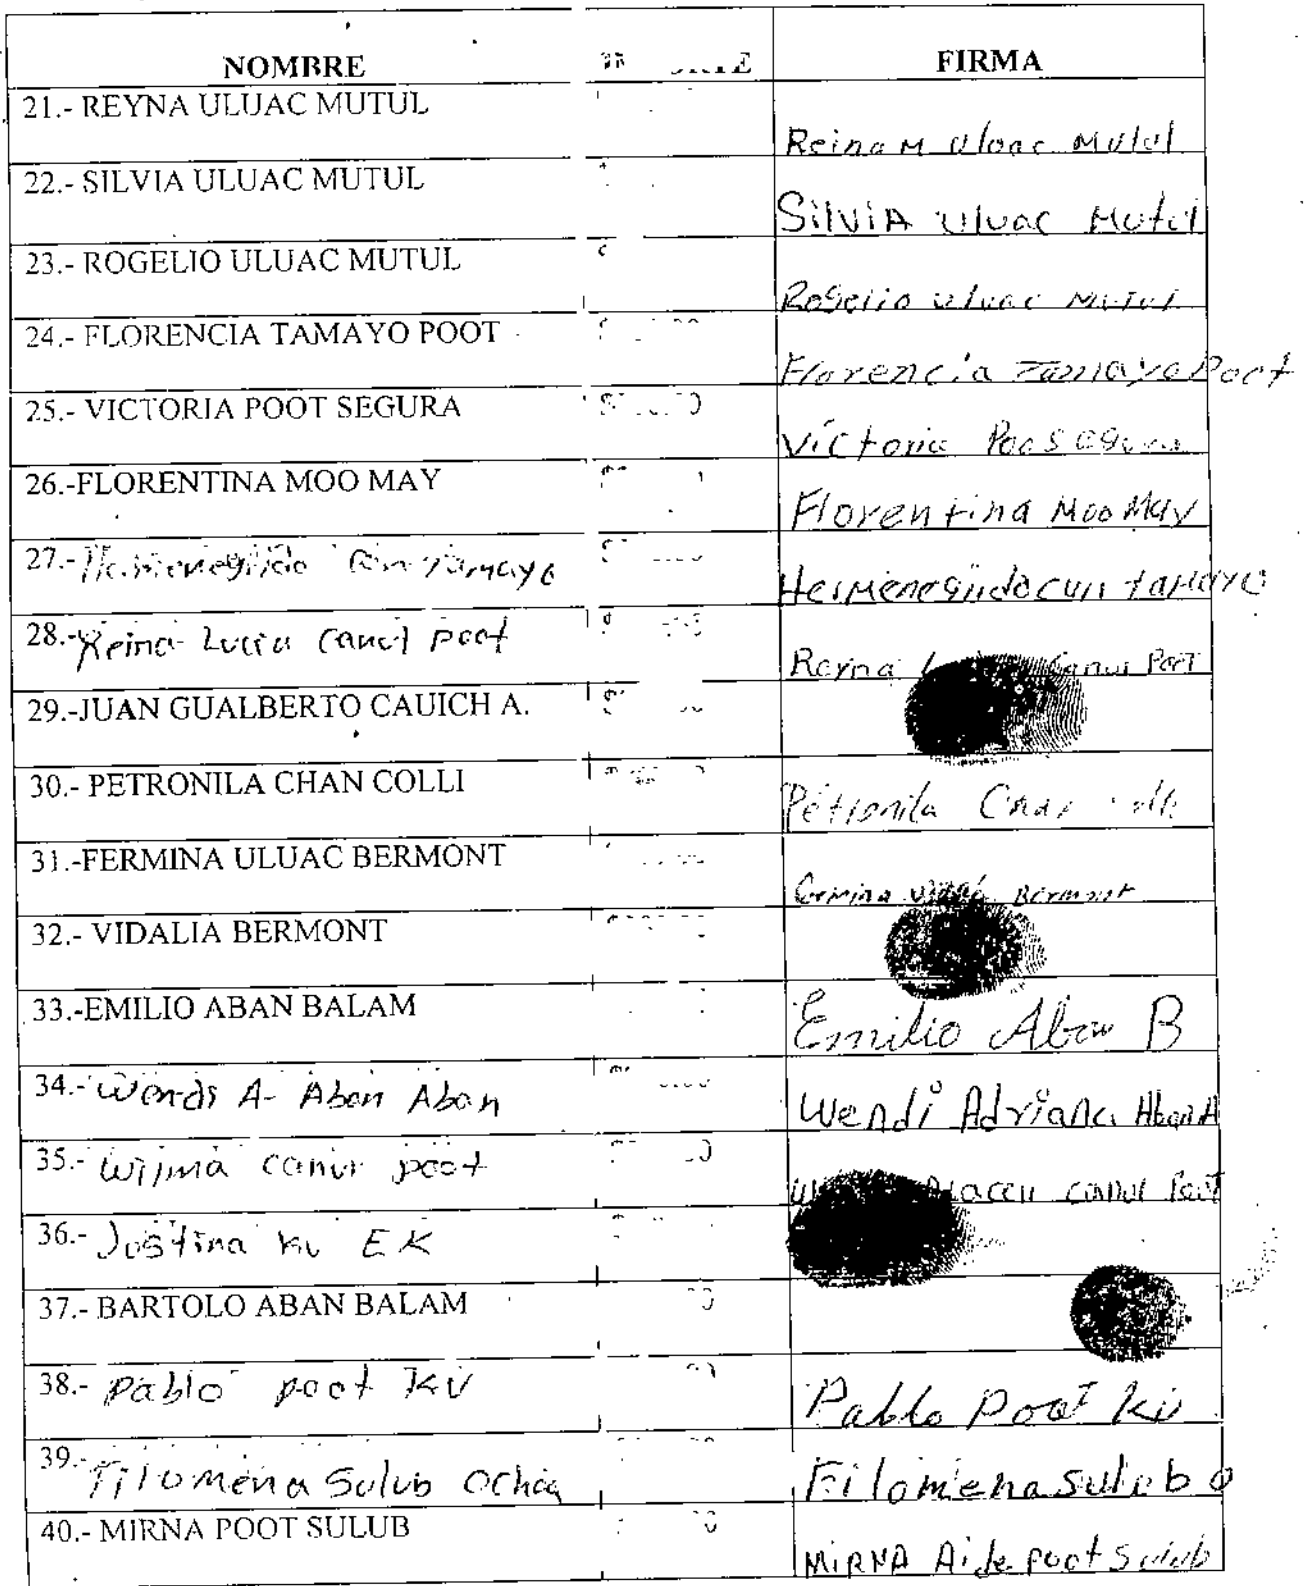 NOMBRE FIRMA
21.- REYNA ULUAC MUTUL
Reina M Uluac Mutul
22.- SILVIA ULUAC MUTUL
SilviA Uluac Mutul
23.- ROGELIO ULUAC MUTUL
Rogelio Uluac Mutul
24.- FLORENCIA TAMAYO POOT
Florencia Tamayo Poot
25.- VICTORIA POOT SEGURA
Victoria Poo Segura
26.-FLORENTINA MOO MAY
Florentina Moo May
27.- Hermenegildo Cun Tamayo
Hermenegildo cun tamayo
28.- Reina Lucia Canul poot
Reyna Canul Poot
29.-JUAN GUALBERTO CAUICH A.
30.- PETRONILA CHAN COLLI
Petronila Chan
31.-FERMINA ULUAC BERMONT
Fermina Bermont
32.- VIDALIA BERMONT
33.-EMILIO ABAN BALAM
Emilio Aban B
34.- Wendi A- Aban Aban
Wendi Adriana Aban A
35.- Wilma canul poot
canul Poot
36.- Justina ku EK
37.- BARTOLO ABAN BALAM
38.- Pablo poot KU
Pablo Poot Ku
39.- Filomena Sulub Ochoa
Filomena sulub o
40.- MIRNA POOT SULUB
MIRNA Aide poot Sulub